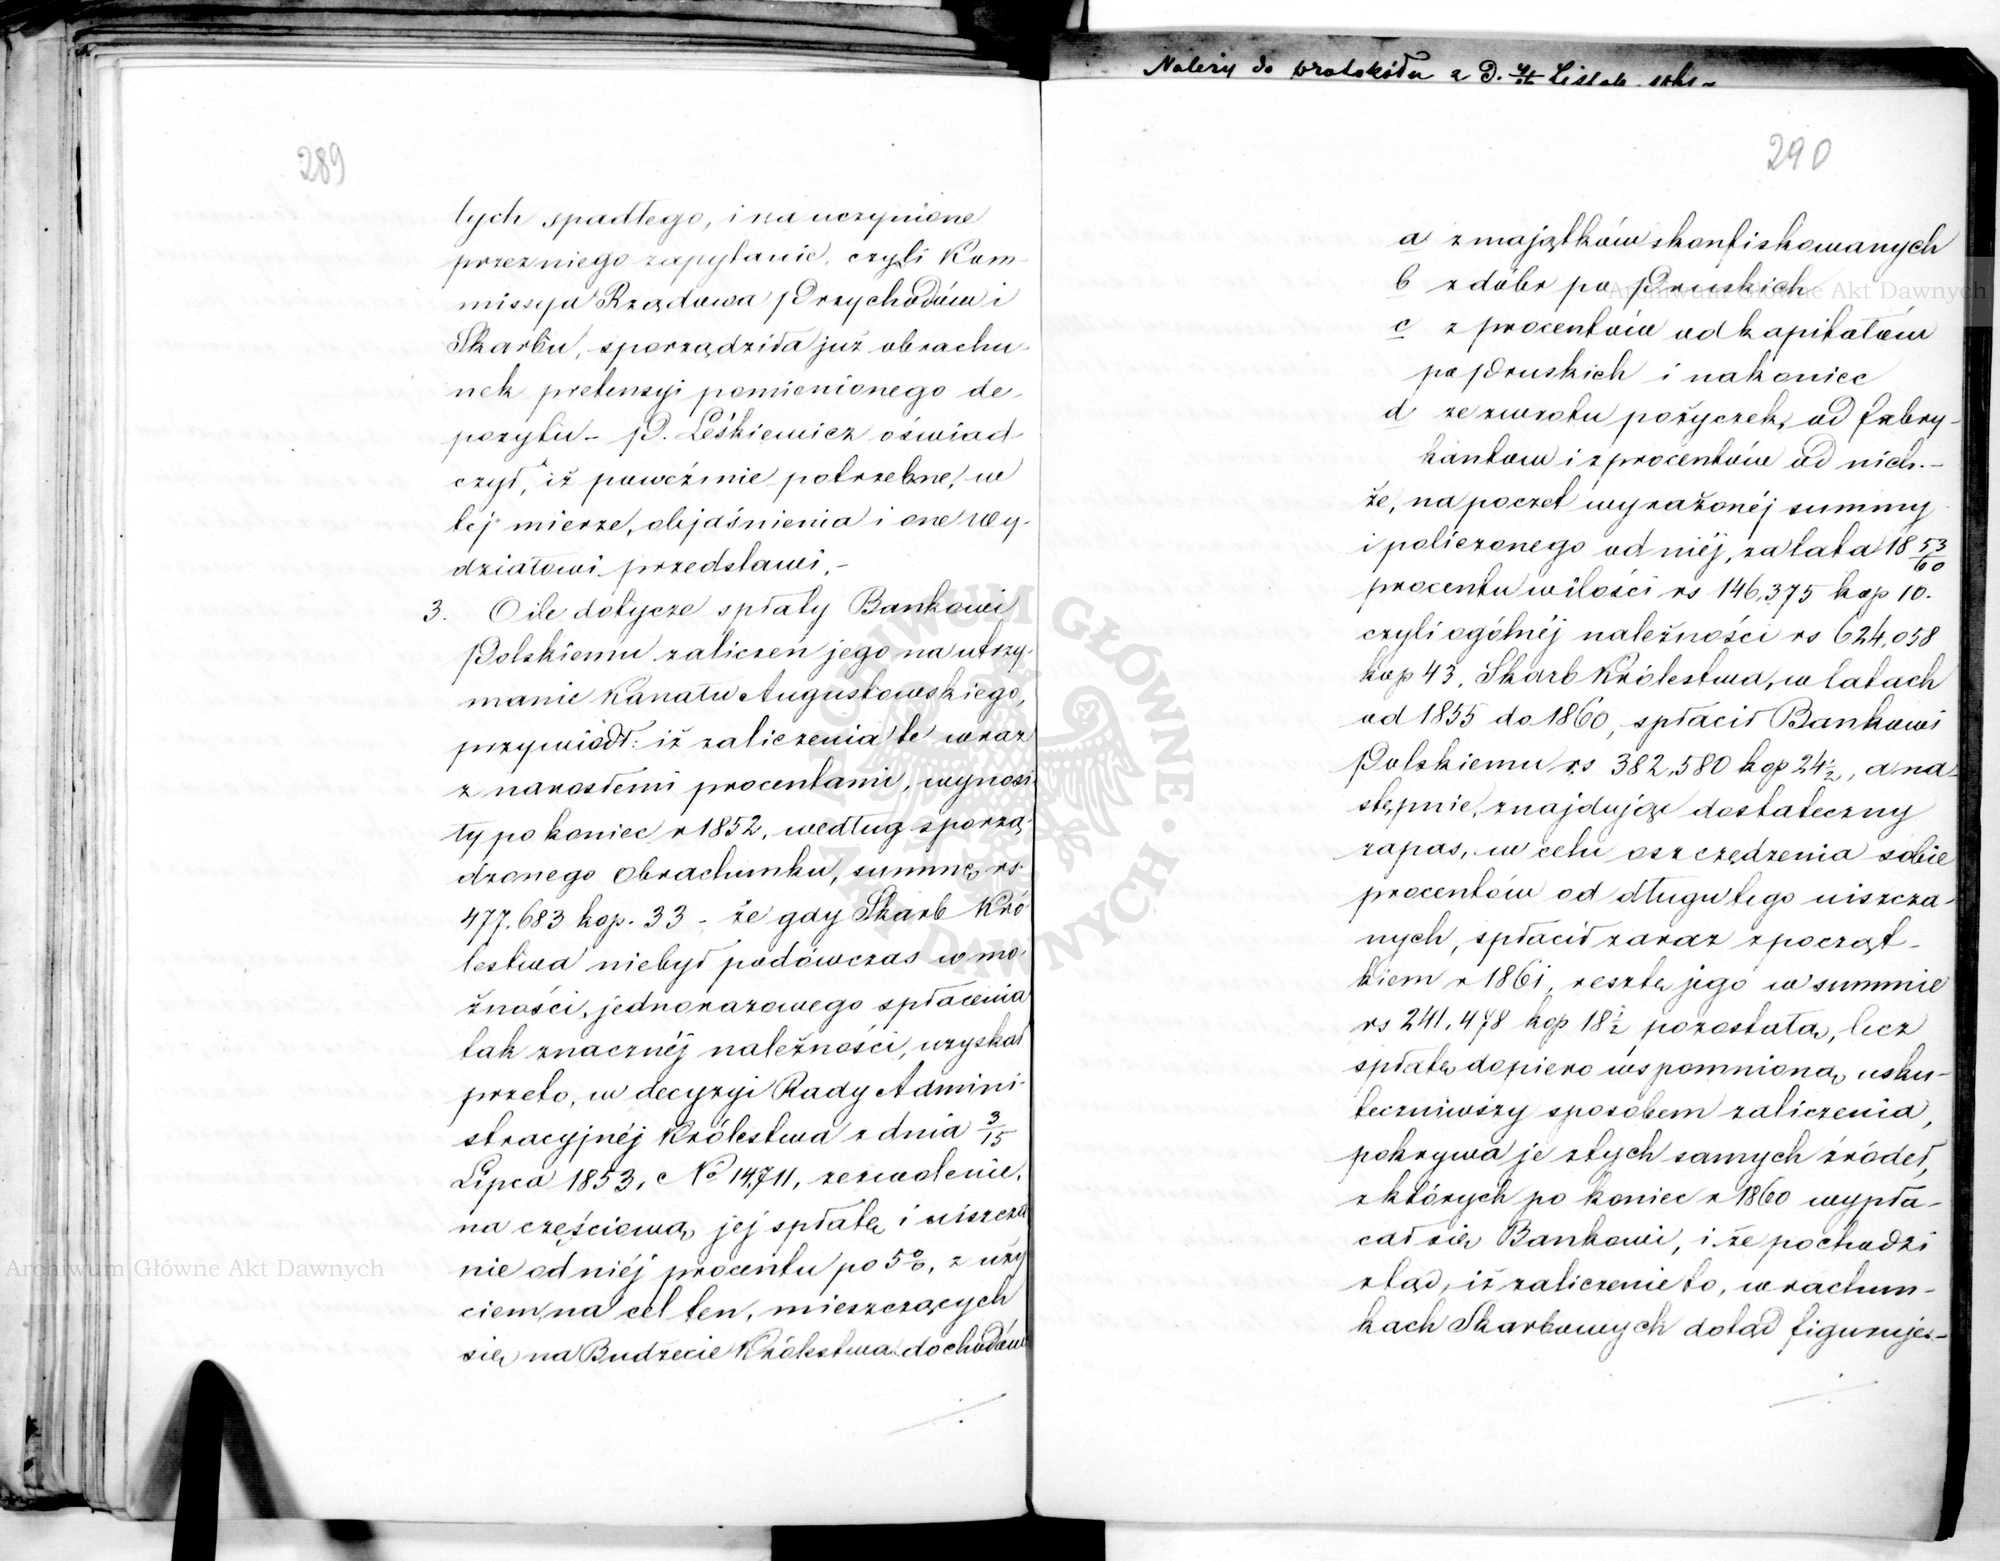 289
tych spadłego, i na uczynione
przez niego zapytanie, czyli Kom-
missya Rządowa Przychodów i
Skarbu, sporządziła już obrachu-
nek pretensyi pomienionego de-
pozytu – P. Leśkiewicz oświad-
czył, iż poweźmie potrzebne, w
tej mierze, objaśnienia i one Wy-
działowi przedstawi, –
3. O ile dotycze spłaty Bankowi
Polskiemu zaliczeń jego na utrzy-
manie Kanału Augustowskiego,
przywiódł: iż zaliczenia te wraz
z narosłemi procentami, wynosi-
ły po koniec r 1852, według sporzą-
dzonego Obrachunku, summę rs
477,683 kop. 33 – że gdy Skarb Kró-
lestwa niebył podówczas w mo-
żności, jednorazowego spłacenia
tak znacznéj należności, uzyskał
przeto, w decyzyi Rady Admini-
stracyjnéj Królestwa z dnia 3/15
Lipca 1853, No 14,711, zezwolenie,
na częściową jej spłatę i uiszcza
nie od niéj procentu po 5%, z uży
ciem, na cel ten, mieszczących
się na Budżecie Królestwa dochodów
Należy do protokółu z D. Listop.
290
a z majątków skonfiskowanych
b z dóbr po Pruskich
c z procentów od kapitałów
po Pruskich i nakoniec
d ze zwrotu pożyczek, od fabry-
kantów i z procentów od nich. –
że, na poczet wyrażonéj summy
i policzonego od niéj, za lata 18 53/60
procentu w ilości rs 146,375 kop 10.
czyli ogólnéj należności rs 624,058
kop 43, Skarb Królestwa, w latach
od 1855 do 1860, spłacił Bankowi
Polskiemu rs 382,580 kop 24½, a na-
stępnie, znajdując dostateczny
zapas, w celu oszczędzenia sobie
procentów od długu tego uiszcza-
nych, spłacił zaraz z począt-
kiem r 1861, resztę jego w summie
rs 241,478 kop 18½ pozostałą, lecz
spłatę dopiero wspomnioną, usku-
teczniwszy sposobem zaliczenia,
pokrywa je z tych samych źródeł,
z których po koniec r 1860 wypła-
cał się Bankowi, i że pochodzi
ztąd, iż zaliczenie to, w rachun-
kach Skarbowych dotąd figuruje. –
Archiwum Główne Akt Dawnych
Archiwum Główne Akt Dawnych
ARCHIWUM GŁÓWNE AKT DAWNYCH